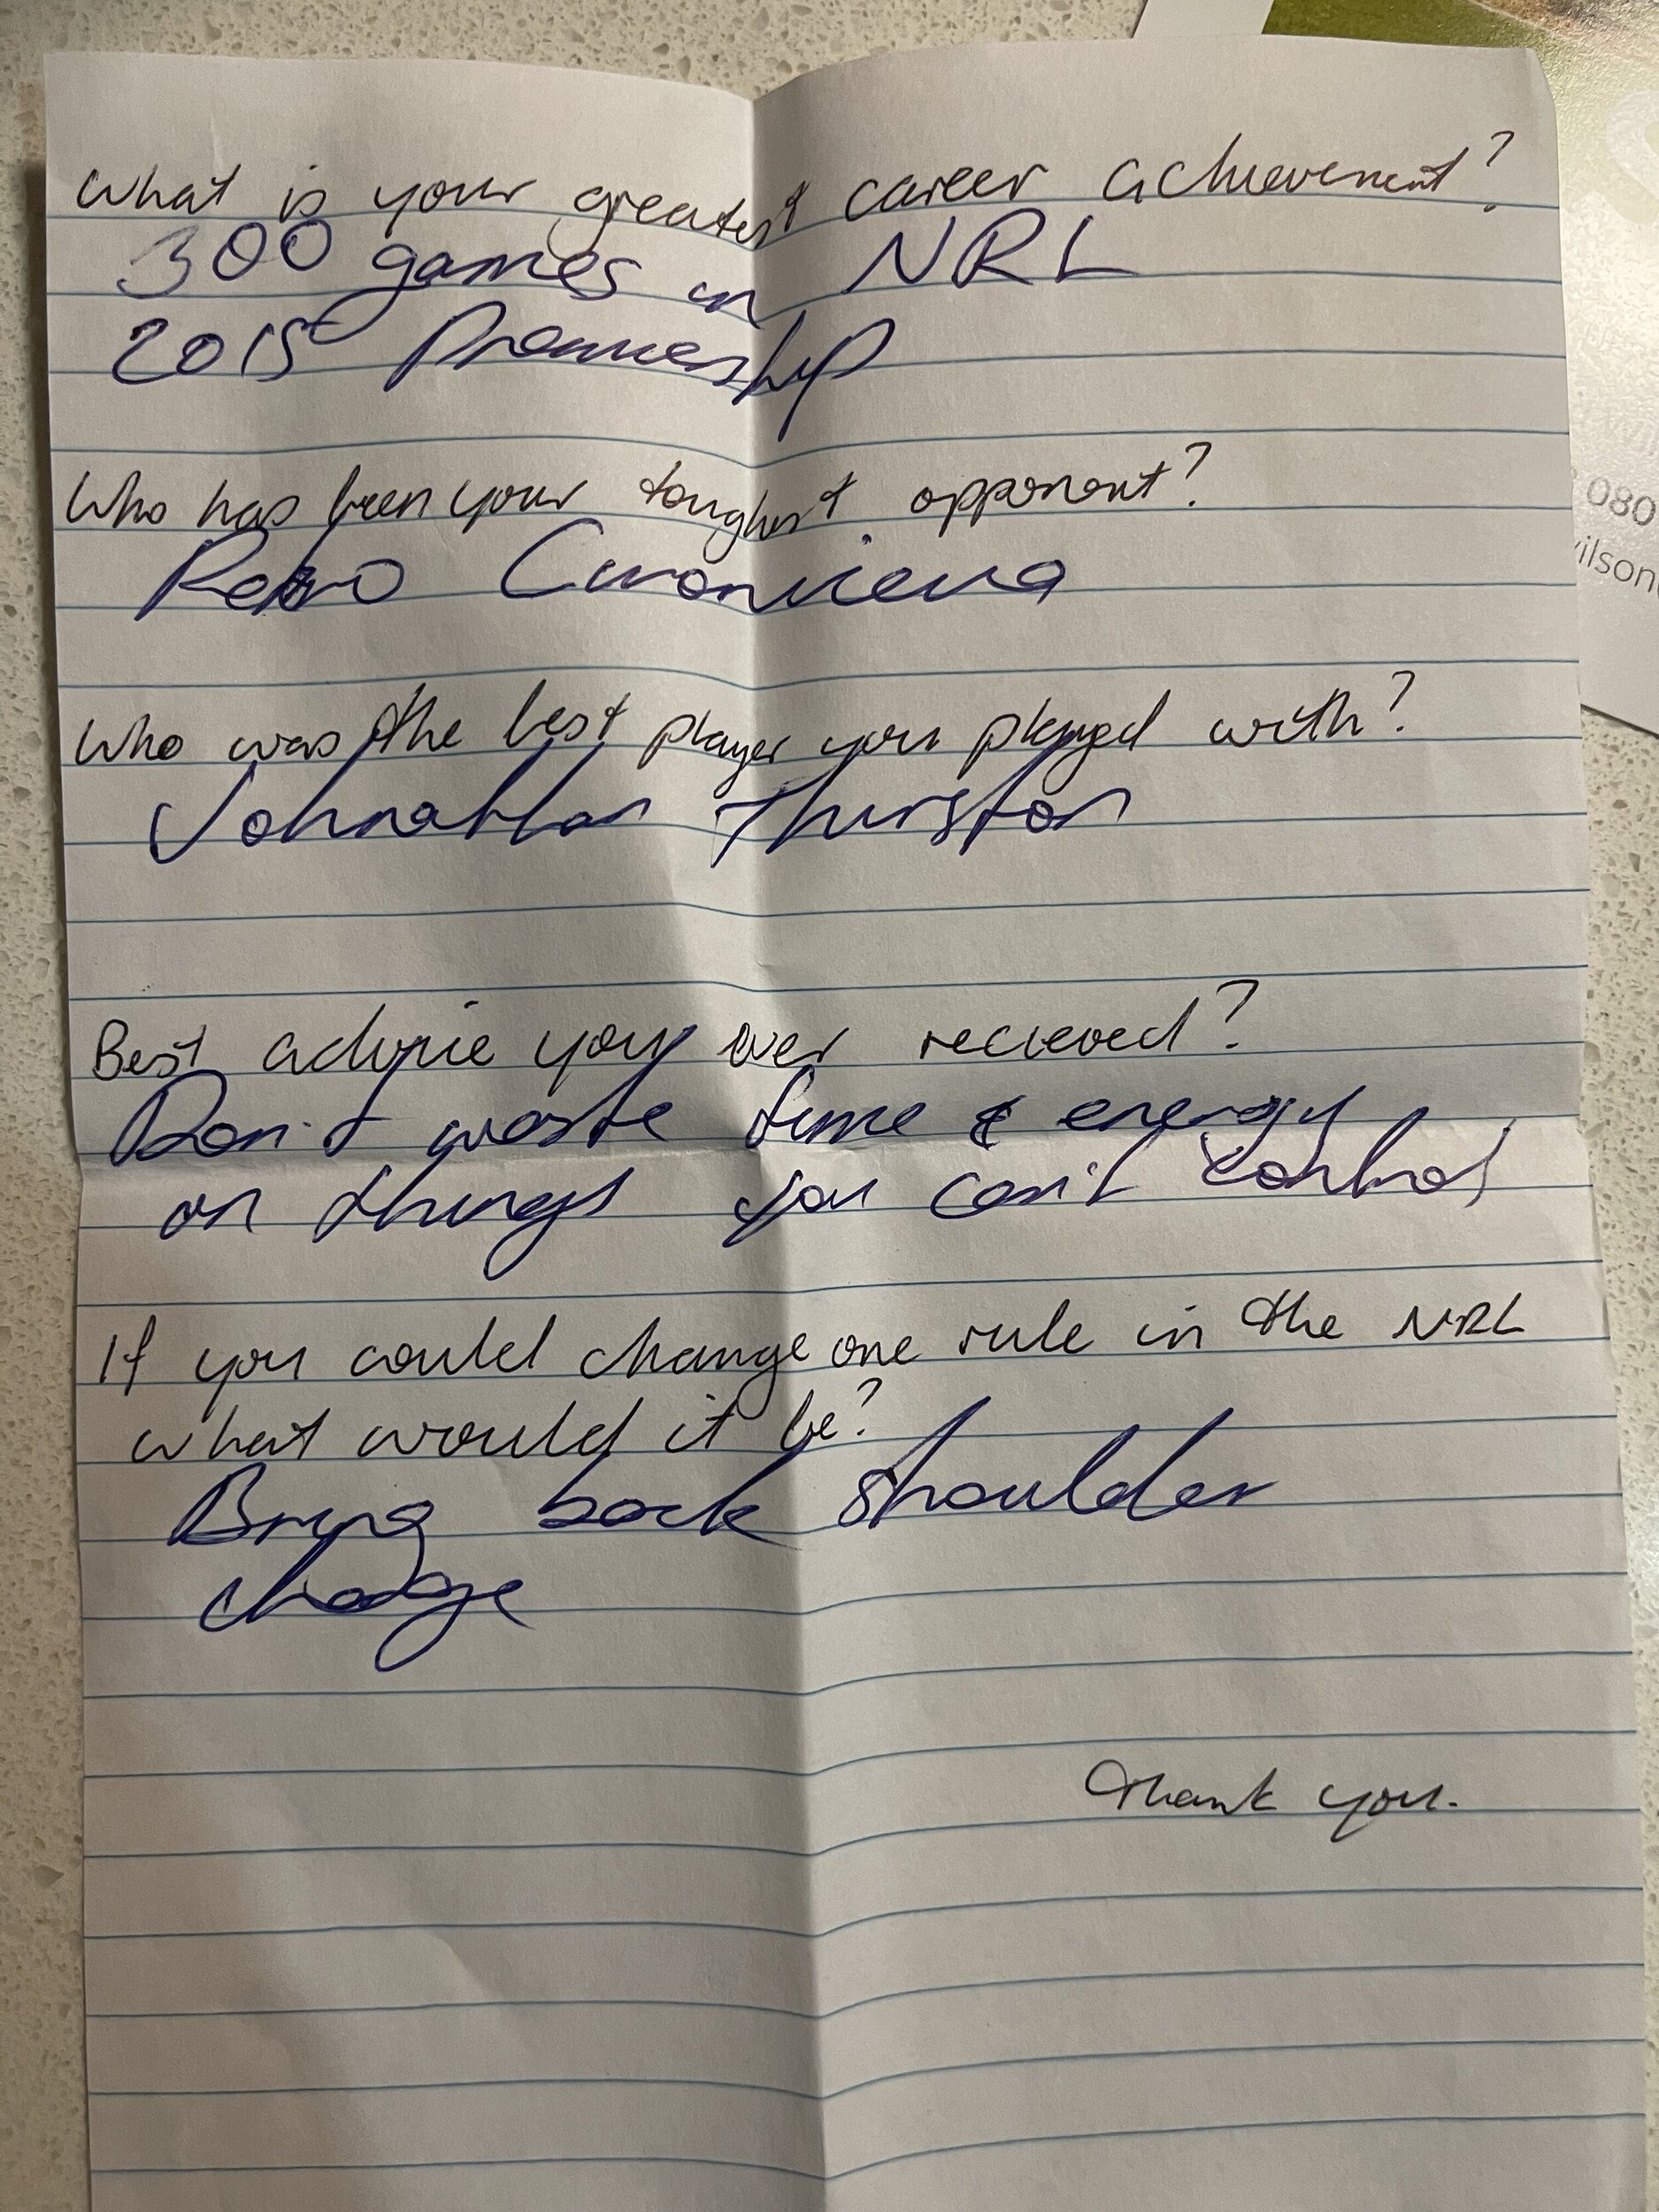 What is your greatest career achievement?
300 games in NRL
2015 Premiership
Who has been your toughest opponent?
Petro Civoniceva
Who was the best player you played with?
Johnathan Thurston
Best advice you ever recieved?
Don't waste time & energy
on things you can't control
If you could change one rule in the NRL
what would it be?
Bring back shoulder
chadge
Thank you.
080
ilson